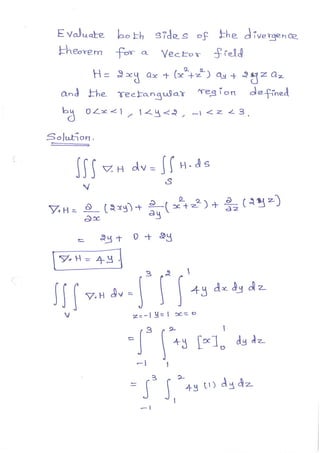 Evaluate both sides of the divergence
theorem for a vector field
H = 2xy ax + (x²+z²) ay + 2yz az
and the rectangular region defined
by 0<x<1, 1<y<2, -1<z<3.
Solution.
∭ ∇.H dv = ∬ H.ds
V S
∇.H = ∂/∂x (2xy) + ∂/∂y (x²+z²) + ∂/∂z (2yz)
= 2y + 0 + 2y
∇.H = 4y.
∭ ∇.H dv = ∫³ ∫² ∫¹ 4y dx dy dz
V z=-1 y=1 x=0
= ∫₋₁³ ∫₁² 4y [x]₀¹ dy dz
= ∫₋₁³ ∫₁² 4y (1) dy dz